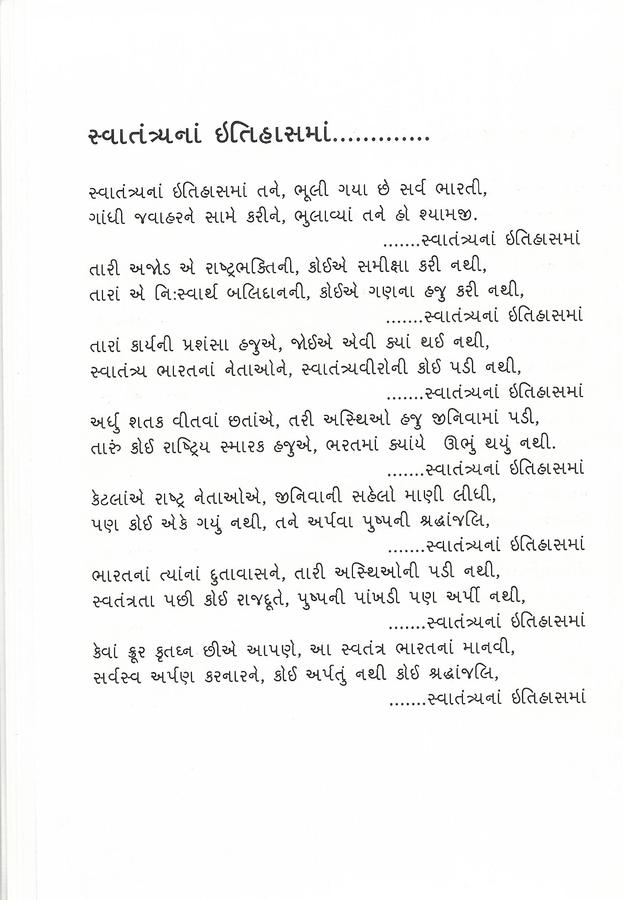 સ્વાતંત્ર્યનાં ઇતિહાસમાં.............
સ્વાતંત્ર્યનાં ઇતિહાસમાં તને, ભૂલી ગયા છે સર્વ ભારતી,
ગાંધી જવાહરને સામે કરીને, ભુલાવ્યાં તને હો શ્યામજી.
.......સ્વાતંત્ર્યનાં ઇતિહાસમાં
તારી અજોડ એ રાષ્ટ્રભક્તિની, કોઈએ સમીક્ષા કરી નથી,
તારાં એ નિઃસ્વાર્થ બલિદાનની, કોઈએ ગણના હજુ કરી નથી,
.......સ્વાતંત્ર્યનાં ઇતિહાસમાં
તારાં કાર્યની પ્રશંસા હજુએ, જોઈએ એવી ક્યાં થઈ નથી,
સ્વાતંત્ર્ય ભારતનાં નેતાઓને, સ્વાતંત્ર્યવીરોની કોઈ પડી નથી,
.......સ્વાતંત્ર્યનાં ઇતિહાસમાં
અર્ધુ શતક વીતવાં છતાંએ, તરી અસ્થિઓ હજુ જીનિવામાં પડી,
તારું કોઈ રાષ્ટ્રિય સ્મારક હજુએ, ભરતમાં ક્યાંયે ઊભું થયું નથી.
.......સ્વાતંત્ર્યનાં ઇતિહાસમાં
કેટલાંએ રાષ્ટ્ર નેતાઓએ, જીનિવાની સહેલો માણી લીધી,
પણ કોઈ એકે ગયું નથી, તને અર્પવા પુષ્પની શ્રદ્ધાંજલિ,
.......સ્વાતંત્ર્યનાં ઇતિહાસમાં
ભારતનાં ત્યાંનાં દુતાવાસને, તારી અસ્થિઓની પડી નથી,
સ્વતંત્રતા પછી કોઈ રાજદૂતે, પુષ્પની પાંખડી પણ અર્પી નથી,
.......સ્વાતંત્ર્યનાં ઇતિહાસમાં
કેવાં ક્રૂર કૃતઘ્ન છીએ આપણે, આ સ્વતંત્ર ભારતનાં માનવી,
સર્વસ્વ અર્પણ કરનારને, કોઈ અર્પતું નથી કોઈ શ્રદ્ધાંજલિ,
.......સ્વાતંત્ર્યનાં ઇતિહાસમાં